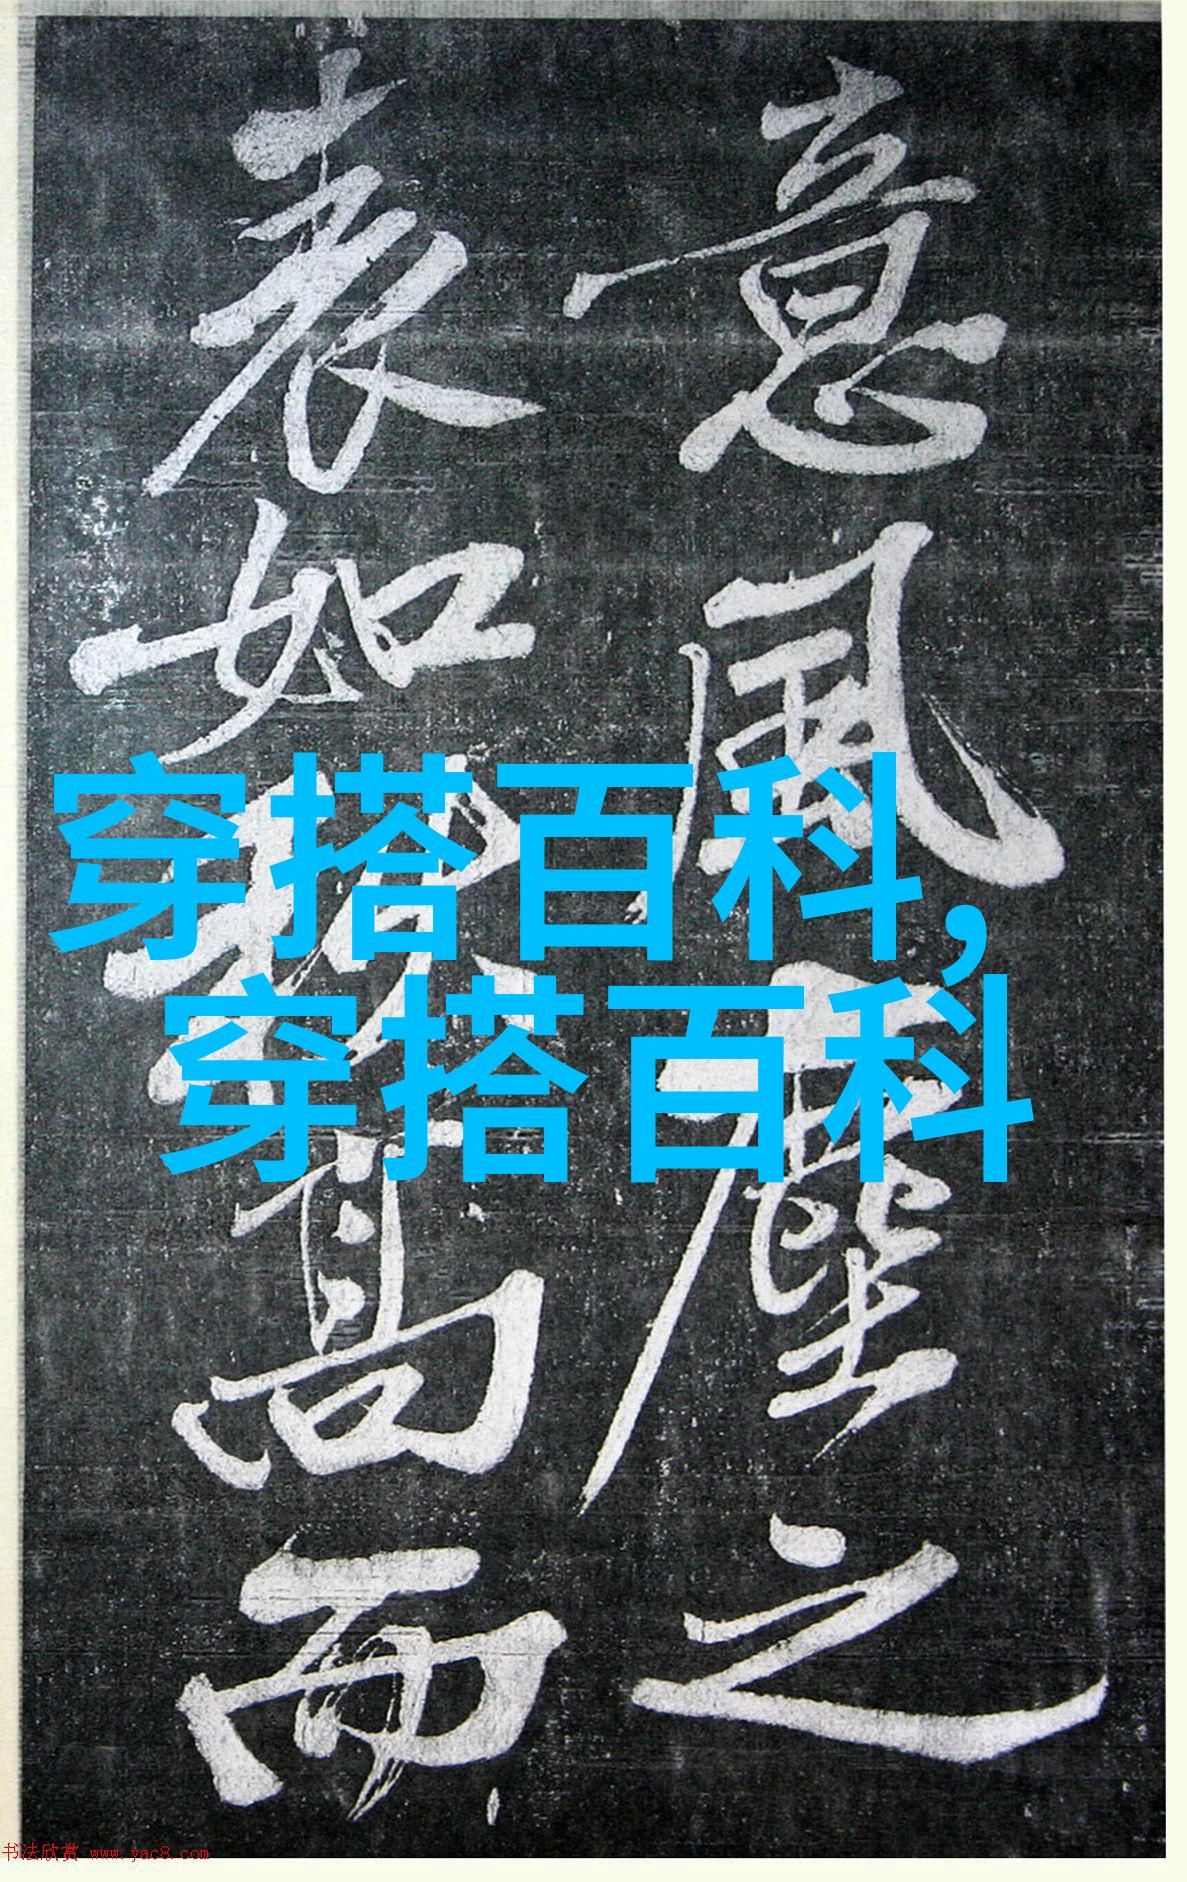 意風塵之
表如高而
穿搭百科,
穿搭百科
书法欣赏 www.yac8.com